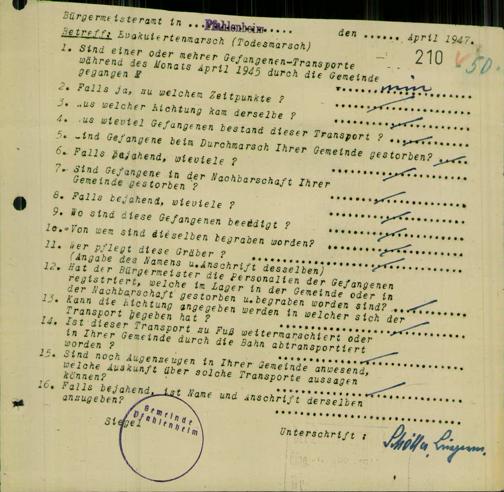 Bürgermeisteramt in ..Pfahlenheim.....
den ...... April 1947.
Betreff: Evakuiertenmarsch (Todesmarsch)
210
50.
1. Sind einer oder mehrer Gefangenen-Transporte
während des Monats April 1945 durch die Gemeinde
gegangen ? nein
2. Falls ja, zu welchem Zeitpunkte ?
3. Aus welcher Richtung kam derselbe ?
4. Aus wieviel Gefangenen bestand dieser Transport ?
5. Sind Gefangene beim Durchmarsch Ihrer Gemeinde gestorben?
6. Falls bejahend, wieviele ?
7. Sind Gefangene in der Nachbarschaft Ihrer
Gemeinde gestorben ?
8. Falls bejahend, wieviele ?
9. Wo sind diese Gefangenen beerdigt ?
10. Von wem sind dieselben begraben worden?
11. Wer pflegt diese Gräber ?
(Angabe des Namens u.Anschrift desselben)
12. Hat der Bürgermeister die Personalien der Gefangenen
registriert, welche im Lager in der Gemeinde oder in
der Nachbarschaft gestorben u.begraben worden sind?
13. Kann die Richtung angegeben werden in welcher sich der
Transport begeben hat ?
14. Ist dieser Transport zu Fuß weitermarschiert oder
in Ihrer Gemeinde durch die Bahn abtransportiert
worden ?
15. Sind noch Augenzeugen in Ihrer Gemeinde anwesend,
welche Auskunft über solche Transporte aussagen
können?
16. Falls bejahend, ist Name und Anschrift derselben
anzugeben?
Siegel
Gemeinde
Pfahlenheim
Unterschrift :